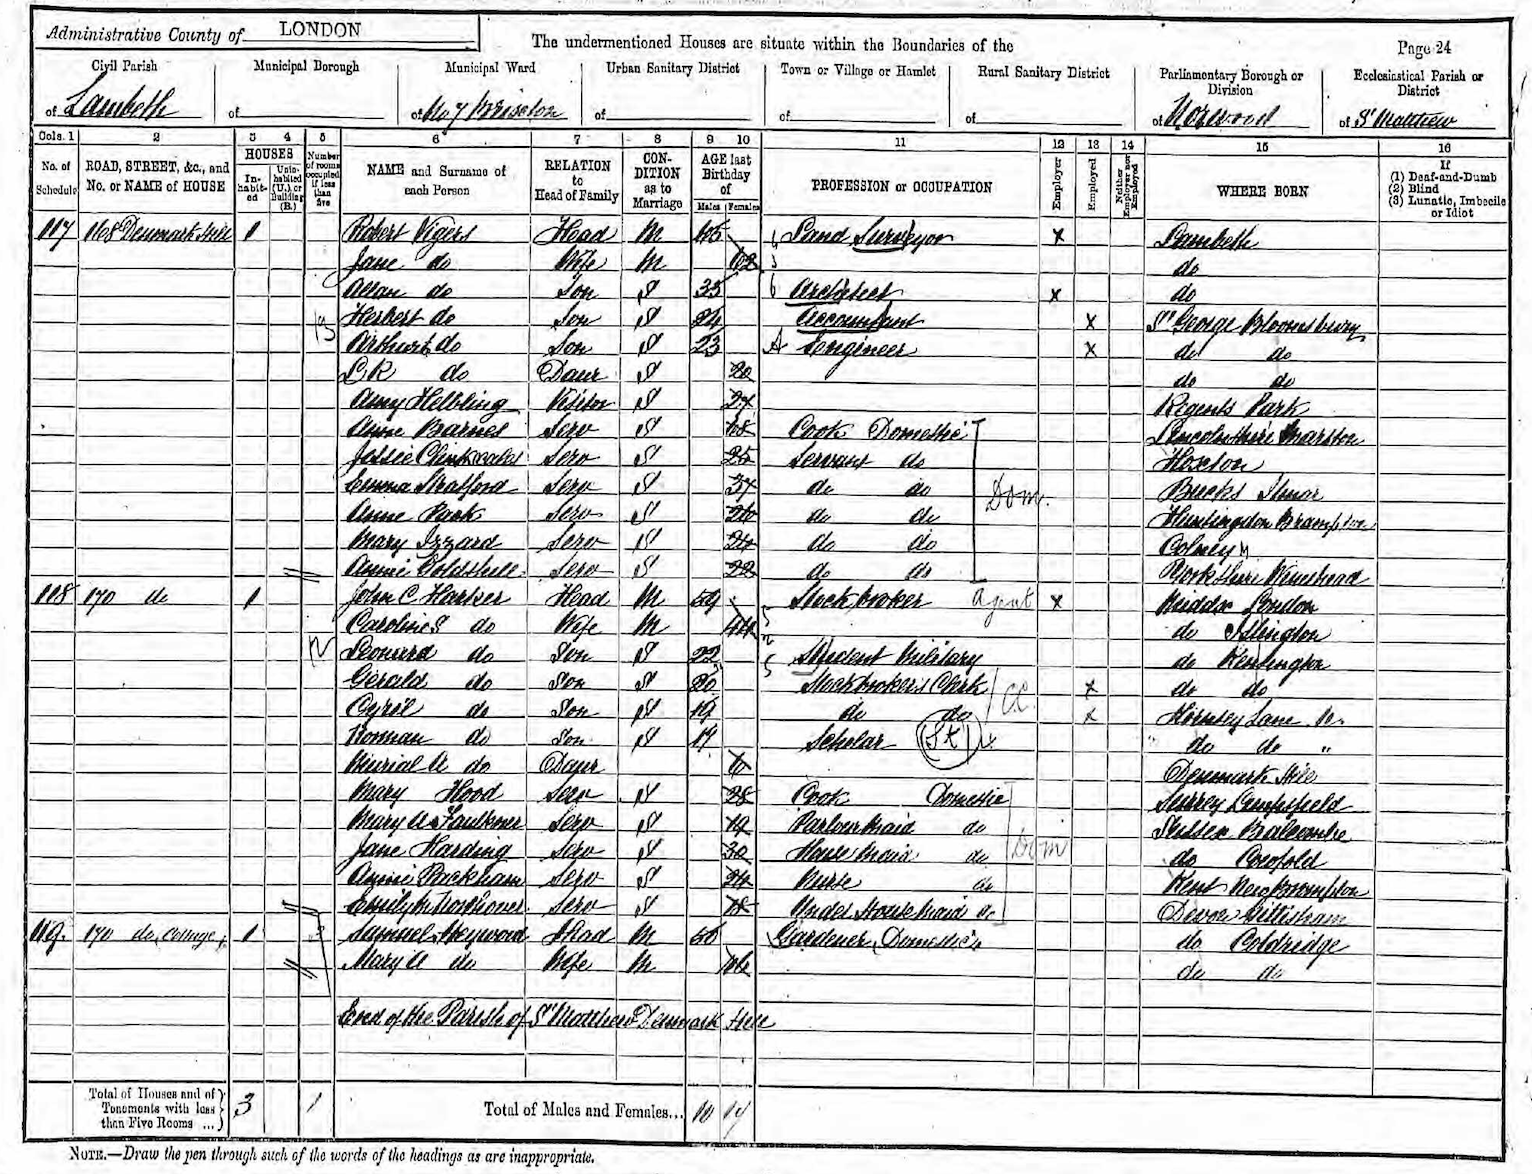 Administrative County of LONDON
The undermentioned Houses are situate within the Boundaries of the
Page 24
Civil Parish
Municipal Borough
Municipal Ward
Urban Sanitary District
Town or Village or Hamlet
Rural Sanitary District
Parliamentary Borough or Division
Ecclesiastical Parish or District
of Lambeth
of
of No 7 Brixton
of
of
of
of Norwood
of St Matthew
Cols. 1 2 3 4 5 6 7 8 9 10 11 12 13 14 15 16
No. of Schedule
ROAD, STREET, &c., and No. or NAME of HOUSE
HOUSES
In-habit-ed
Unin-habited (U.), or Building (B.)
Number of rooms occupied if less than five
NAME and Surname of each Person
RELATION to Head of Family
CON-DITION as to Marriage
AGE last Birthday of
Males Females
PROFESSION or OCCUPATION
Employer
Employed
Neither Employer nor Employed
WHERE BORN
If
(1) Deaf-and-Dumb
(2) Blind
(3) Lunatic, Imbecile or Idiot
117 168 Denmark Hill 1 Robert Vigers Head M 65 Land Surveyor X Lambeth
Jane do Wife M 62 do
Allan do Son S 33 Architect X do
Herbert do Son S 24 Accountant X St George Bloomsbury
Arthur do Son S 23 A Engineer X do do
L R do Daur S 20 do do
Amy Helbling Visitor S 27 Regents Park
Anne Barnes Serv S 68 Cook Domestic Lincolnshire Marston
Jessie Serv S 25 Servant do Hoxton
Emma Stratford Serv S 37 do do Dom. Bucks
Anne Pack Serv S 26 do do Huntingdon Brampton
Mary Izzard Serv S 24 do do Colney
Annie Serv S 22 do do Yorkshire
118 170 do 1 John C Harker Head M 59 Stockbroker Agent X Middx London
Caroline S do Wife M 44 do Islington
Leonard do Son S 22 Student Military do Kensington
Gerald do Son S 20 Stockbroker's Clerk CC. X do do
Cyril do Son S 19 do do X Hornsey Lane
Norman do Son S 17 Scholar (St) do do "
Murial A do Daur 6 Denmark Hill
Mary Hood Serv S 28 Cook Domestic Surrey Limpsfield
Mary A Faulkner Serv S 19 Parlour Maid do Sussex Balcombe
Jane Harding Serv S 30 House Maid do Dom do Cowfold
Annie Packham Serv S 24 Nurse do Kent New Brompton
Emily Serv S 18 Under House Maid do Devon
119. 170 do, Cottage 1 Samuel Heywood Head M 58 Gardener, Domestic do Coldridge
Mary A do Wife M do do
End of the Parish of St Matthew Denmark Hill
Total of Houses and of Tenements with less than Five Rooms ... 3 1
Total of Males and Females... 10 17
NOTE.—Draw the pen through such of the words of the headings as are inappropriate.